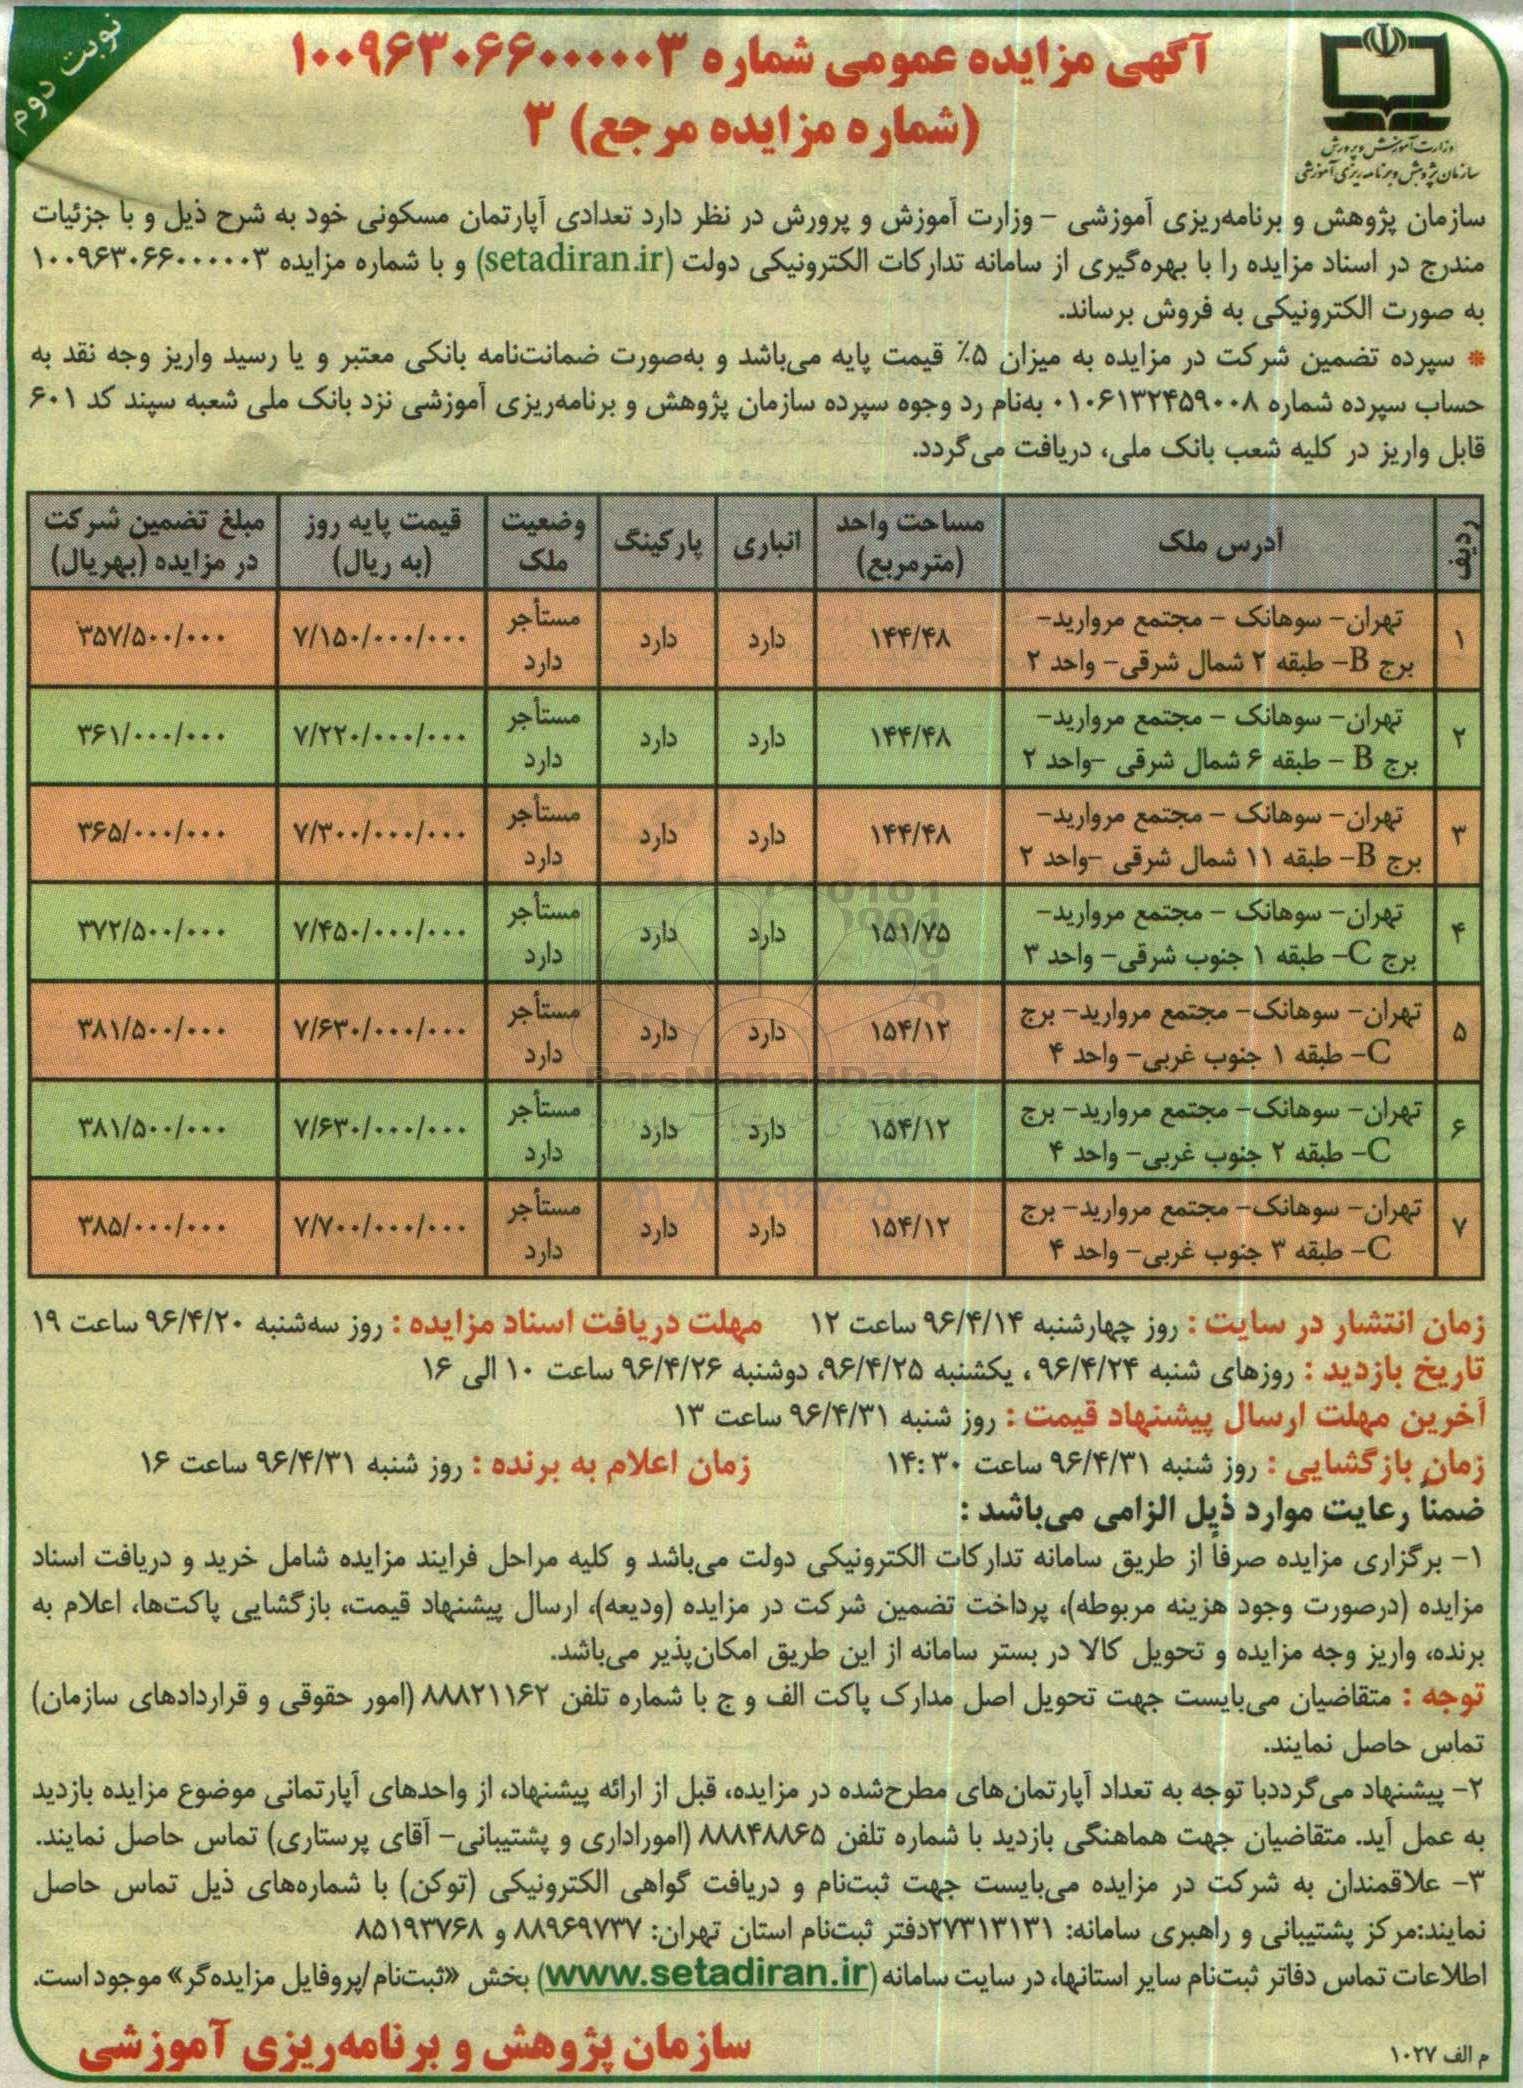 نوبت دوم
وزارت آموزش و پرورش
سازمان پژوهش و برنامه‌ریزی آموزشی
آگهی مزایده عمومی شماره ۱۰۰۹۶۳۰۶۶۰۰۰۰۰۳
(شماره مزایده مرجع) ۳
سازمان پژوهش و برنامه‌ریزی آموزشی - وزارت آموزش و پرورش در نظر دارد تعدادی آپارتمان مسکونی خود به شرح ذیل و با جزئیات
مندرج در اسناد مزایده را با بهره‌گیری از سامانه تدارکات الکترونیکی دولت (setadiran.ir) و با شماره مزایده ۱۰۰۹۶۳۰۶۶۰۰۰۰۰۳
به صورت الکترونیکی به فروش برساند.
* سپرده تضمین شرکت در مزایده به میزان ۵٪ قیمت پایه می‌باشد و به‌صورت ضمانت‌نامه بانکی معتبر و یا رسید واریز وجه نقد به
حساب سپرده شماره ۰۱۰۶۱۳۲۴۵۹۰۰۸ به‌نام رد وجوه سپرده سازمان پژوهش و برنامه‌ریزی آموزشی نزد بانک ملی شعبه سپند کد ۶۰۱
قابل واریز در کلیه شعب بانک ملی، دریافت می‌گردد.
ردیف | آدرس ملک | مساحت واحد (مترمربع) | انباری | پارکینگ | وضعیت ملک | قیمت پایه روز (به ریال) | مبلغ تضمین شرکت در مزایده (به‌ریال)
۱ | تهران- سوهانک - مجتمع مروارید- برج B- طبقه ۲ شمال شرقی- واحد ۲ | ۱۴۴/۴۸ | دارد | دارد | مستأجر دارد | ۷/۱۵۰/۰۰۰/۰۰۰ | ۳۵۷/۵۰۰/۰۰۰
۲ | تهران- سوهانک - مجتمع مروارید- برج B - طبقه ۶ شمال شرقی -واحد ۲ | ۱۴۴/۴۸ | دارد | دارد | مستأجر دارد | ۷/۲۲۰/۰۰۰/۰۰۰ | ۳۶۱/۰۰۰/۰۰۰
۳ | تهران- سوهانک - مجتمع مروارید- برج B- طبقه ۱۱ شمال شرقی -واحد ۲ | ۱۴۴/۴۸ | دارد | دارد | مستأجر دارد | ۷/۳۰۰/۰۰۰/۰۰۰ | ۳۶۵/۰۰۰/۰۰۰
۴ | تهران- سوهانک - مجتمع مروارید- برج C- طبقه ۱ جنوب شرقی- واحد ۳ | ۱۵۱/۷۵ | دارد | دارد | مستأجر دارد | ۷/۴۵۰/۰۰۰/۰۰۰ | ۳۷۲/۵۰۰/۰۰۰
۵ | تهران- سوهانک- مجتمع مروارید- برج C- طبقه ۱ جنوب غربی- واحد ۴ | ۱۵۴/۱۲ | دارد | دارد | مستأجر دارد | ۷/۶۳۰/۰۰۰/۰۰۰ | ۳۸۱/۵۰۰/۰۰۰
۶ | تهران- سوهانک- مجتمع مروارید- برج C- طبقه ۲ جنوب غربی- واحد ۴ | ۱۵۴/۱۲ | دارد | دارد | مستأجر دارد | ۷/۶۳۰/۰۰۰/۰۰۰ | ۳۸۱/۵۰۰/۰۰۰
۷ | تهران- سوهانک- مجتمع مروارید- برج C- طبقه ۳ جنوب غربی- واحد ۴ | ۱۵۴/۱۲ | دارد | دارد | مستأجر دارد | ۷/۷۰۰/۰۰۰/۰۰۰ | ۳۸۵/۰۰۰/۰۰۰
ParsNamadData
زمان انتشار در سایت : روز چهارشنبه ۹۶/۴/۱۴ ساعت ۱۲ مهلت دریافت اسناد مزایده : روز سه‌شنبه ۹۶/۴/۲۰ ساعت ۱۹
تاریخ بازدید : روزهای شنبه ۹۶/۴/۲۴ ، یکشنبه ۹۶/۴/۲۵، دوشنبه ۹۶/۴/۲۶ ساعت ۱۰ الی ۱۶
آخرین مهلت ارسال پیشنهاد قیمت : روز شنبه ۹۶/۴/۳۱ ساعت ۱۳
زمان بازگشایی : روز شنبه ۹۶/۴/۳۱ ساعت ۱۴:۳۰ زمان اعلام به برنده : روز شنبه ۹۶/۴/۳۱ ساعت ۱۶
ضمناً رعایت موارد ذیل الزامی می‌باشد :
۱- برگزاری مزایده صرفاً از طریق سامانه تدارکات الکترونیکی دولت می‌باشد و کلیه مراحل فرایند مزایده شامل خرید و دریافت اسناد
مزایده (درصورت وجود هزینه مربوطه)، پرداخت تضمین شرکت در مزایده (ودیعه)، ارسال پیشنهاد قیمت، بازگشایی پاکت‌ها، اعلام به
برنده، واریز وجه مزایده و تحویل کالا در بستر سامانه از این طریق امکان‌پذیر می‌باشد.
توجه : متقاضیان می‌بایست جهت تحویل اصل مدارک پاکت الف و ج با شماره تلفن ۸۸۸۲۱۱۶۲ (امور حقوقی و قراردادهای سازمان)
تماس حاصل نمایند.
۲- پیشنهاد می‌گرددبا توجه به تعداد آپارتمان‌های مطرح‌شده در مزایده، قبل از ارائه پیشنهاد، از واحدهای آپارتمانی موضوع مزایده بازدید
به عمل آید. متقاضیان جهت هماهنگی بازدید با شماره تلفن ۸۸۸۴۸۸۶۵ (اموراداری و پشتیبانی- آقای پرستاری) تماس حاصل نمایند.
۳- علاقمندان به شرکت در مزایده می‌بایست جهت ثبت‌نام و دریافت گواهی الکترونیکی (توکن) با شماره‌های ذیل تماس حاصل
نمایند:مرکز پشتیبانی و راهبری سامانه: ۲۷۳۱۳۱۳۱دفتر ثبت‌نام استان تهران: ۸۸۹۶۹۷۳۷ و ۸۵۱۹۳۷۶۸
اطلاعات تماس دفاتر ثبت‌نام سایر استانها، در سایت سامانه (www.setadiran.ir) بخش «ثبت‌نام/پروفایل مزایده‌گر» موجود است.
سازمان پژوهش و برنامه‌ریزی آموزشی
م الف ۱۰۲۷